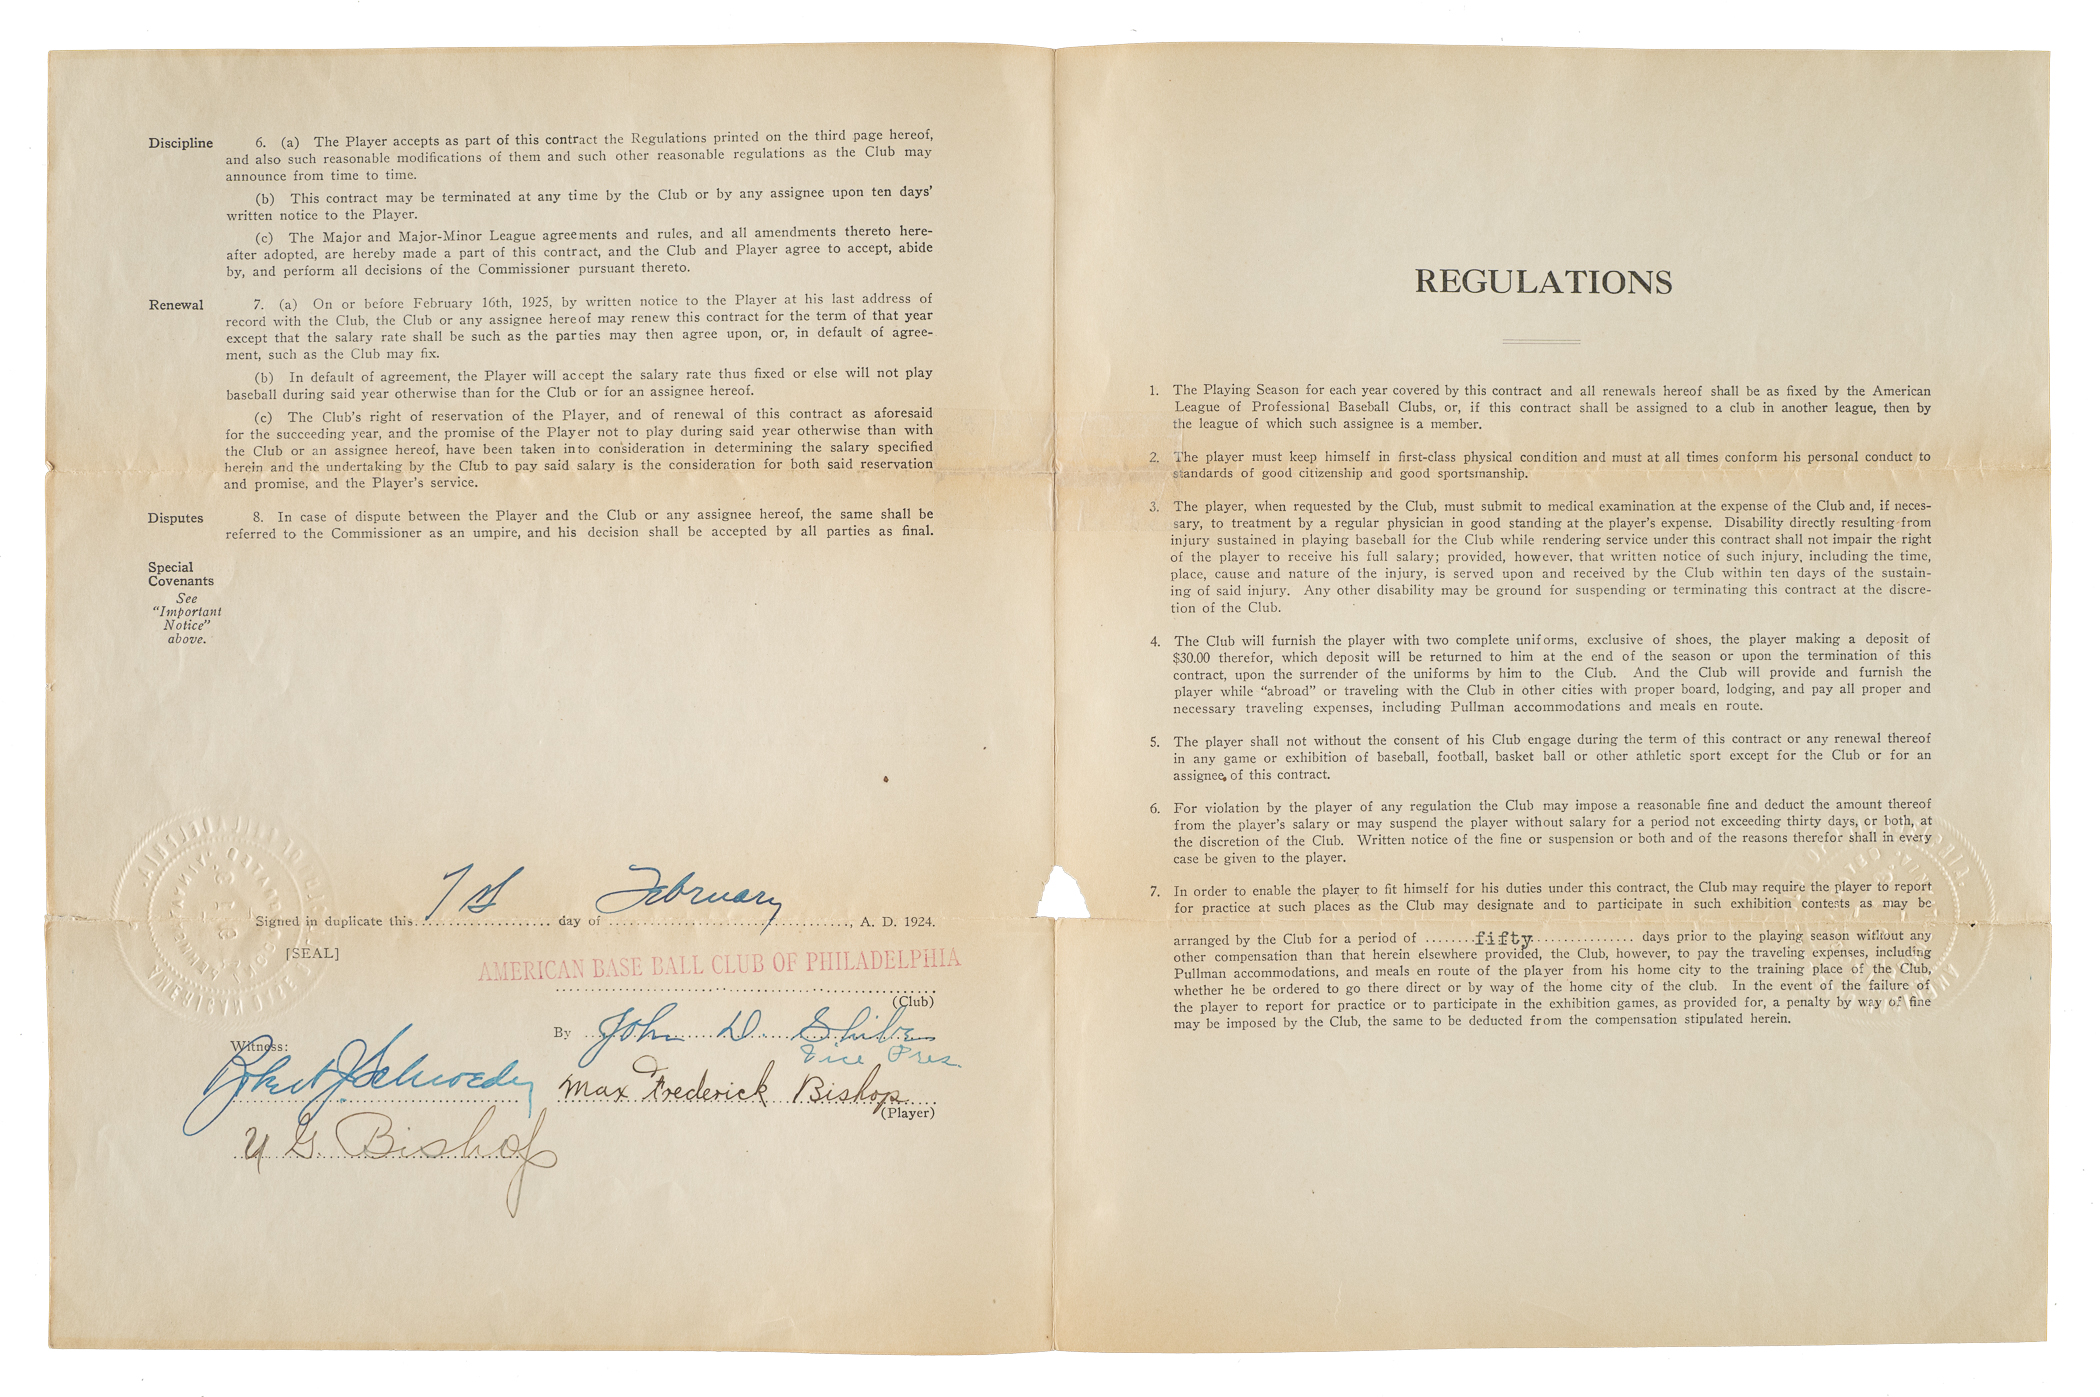 Discipline
6. (a) The Player accepts as part of this contract the Regulations printed on the third page hereof,
and also such reasonable modifications of them and such other reasonable regulations as the Club may
announce from time to time.
(b) This contract may be terminated at any time by the Club or by any assignee upon ten days'
written notice to the Player.
(c) The Major and Major-Minor League agreements and rules, and all amendments thereto here-
after adopted, are hereby made a part of this contract, and the Club and Player agree to accept, abide
by, and perform all decisions of the Commissioner pursuant thereto.
Renewal
7. (a) On or before February 16th, 1925, by written notice to the Player at his last address of
record with the Club, the Club or any assignee hereof may renew this contract for the term of that year
except that the salary rate shall be such as the parties may then agree upon, or, in default of agree-
ment, such as the Club may fix.
(b) In default of agreement, the Player will accept the salary rate thus fixed or else will not play
baseball during said year otherwise than for the Club or for an assignee hereof.
(c) The Club's right of reservation of the Player, and of renewal of this contract as aforesaid
for the succeeding year, and the promise of the Player not to play during said year otherwise than with
the Club or an assignee hereof, have been taken into consideration in determining the salary specified
herein and the undertaking by the Club to pay said salary is the consideration for both said reservation
and promise, and the Player's service.
Disputes
8. In case of dispute between the Player and the Club or any assignee hereof, the same shall be
referred to the Commissioner as an umpire, and his decision shall be accepted by all parties as final.
Special
Covenants
See
"Important
Notice"
above.
Signed in duplicate this 1st day of February, A. D. 1924.
[SEAL]
AMERICAN BASE BALL CLUB OF PHILADELPHIA
(Club)
By John D. Shibe
Vice Pres.
Witness:
Robert J. Schroeder
Max Frederick Bishop
(Player)
U. G. Bishop
REGULATIONS
1. The Playing Season for each year covered by this contract and all renewals hereof shall be as fixed by the American
League of Professional Baseball Clubs, or, if this contract shall be assigned to a club in another league, then by
the league of which such assignee is a member.
2. The player must keep himself in first-class physical condition and must at all times conform his personal conduct to
standards of good citizenship and good sportsmanship.
3. The player, when requested by the Club, must submit to medical examination at the expense of the Club and, if neces-
sary, to treatment by a regular physician in good standing at the player's expense. Disability directly resulting from
injury sustained in playing baseball for the Club while rendering service under this contract shall not impair the right
of the player to receive his full salary; provided, however, that written notice of such injury, including the time,
place, cause and nature of the injury, is served upon and received by the Club within ten days of the sustain-
ing of said injury. Any other disability may be ground for suspending or terminating this contract at the discre-
tion of the Club.
4. The Club will furnish the player with two complete uniforms, exclusive of shoes, the player making a deposit of
$30.00 therefor, which deposit will be returned to him at the end of the season or upon the termination of this
contract, upon the surrender of the uniforms by him to the Club. And the Club will provide and furnish the
player while "abroad" or traveling with the Club in other cities with proper board, lodging, and pay all proper and
necessary traveling expenses, including Pullman accommodations and meals en route.
5. The player shall not without the consent of his Club engage during the term of this contract or any renewal thereof
in any game or exhibition of baseball, football, basket ball or other athletic sport except for the Club or for an
assignee of this contract.
6. For violation by the player of any regulation the Club may impose a reasonable fine and deduct the amount thereof
from the player's salary or may suspend the player without salary for a period not exceeding thirty days, or both, at
the discretion of the Club. Written notice of the fine or suspension or both and of the reasons therefor shall in every
case be given to the player.
7. In order to enable the player to fit himself for his duties under this contract, the Club may require the player to report
for practice at such places as the Club may designate and to participate in such exhibition contests as may be
arranged by the Club for a period of fifty days prior to the playing season without any
other compensation than that herein elsewhere provided, the Club, however, to pay the traveling expenses, including
Pullman accommodations, and meals en route of the player from his home city to the training place of the Club,
whether he be ordered to go there direct or by way of the home city of the club. In the event of the failure of
the player to report for practice or to participate in the exhibition games, as provided for, a penalty by way of fine
may be imposed by the Club, the same to be deducted from the compensation stipulated herein.